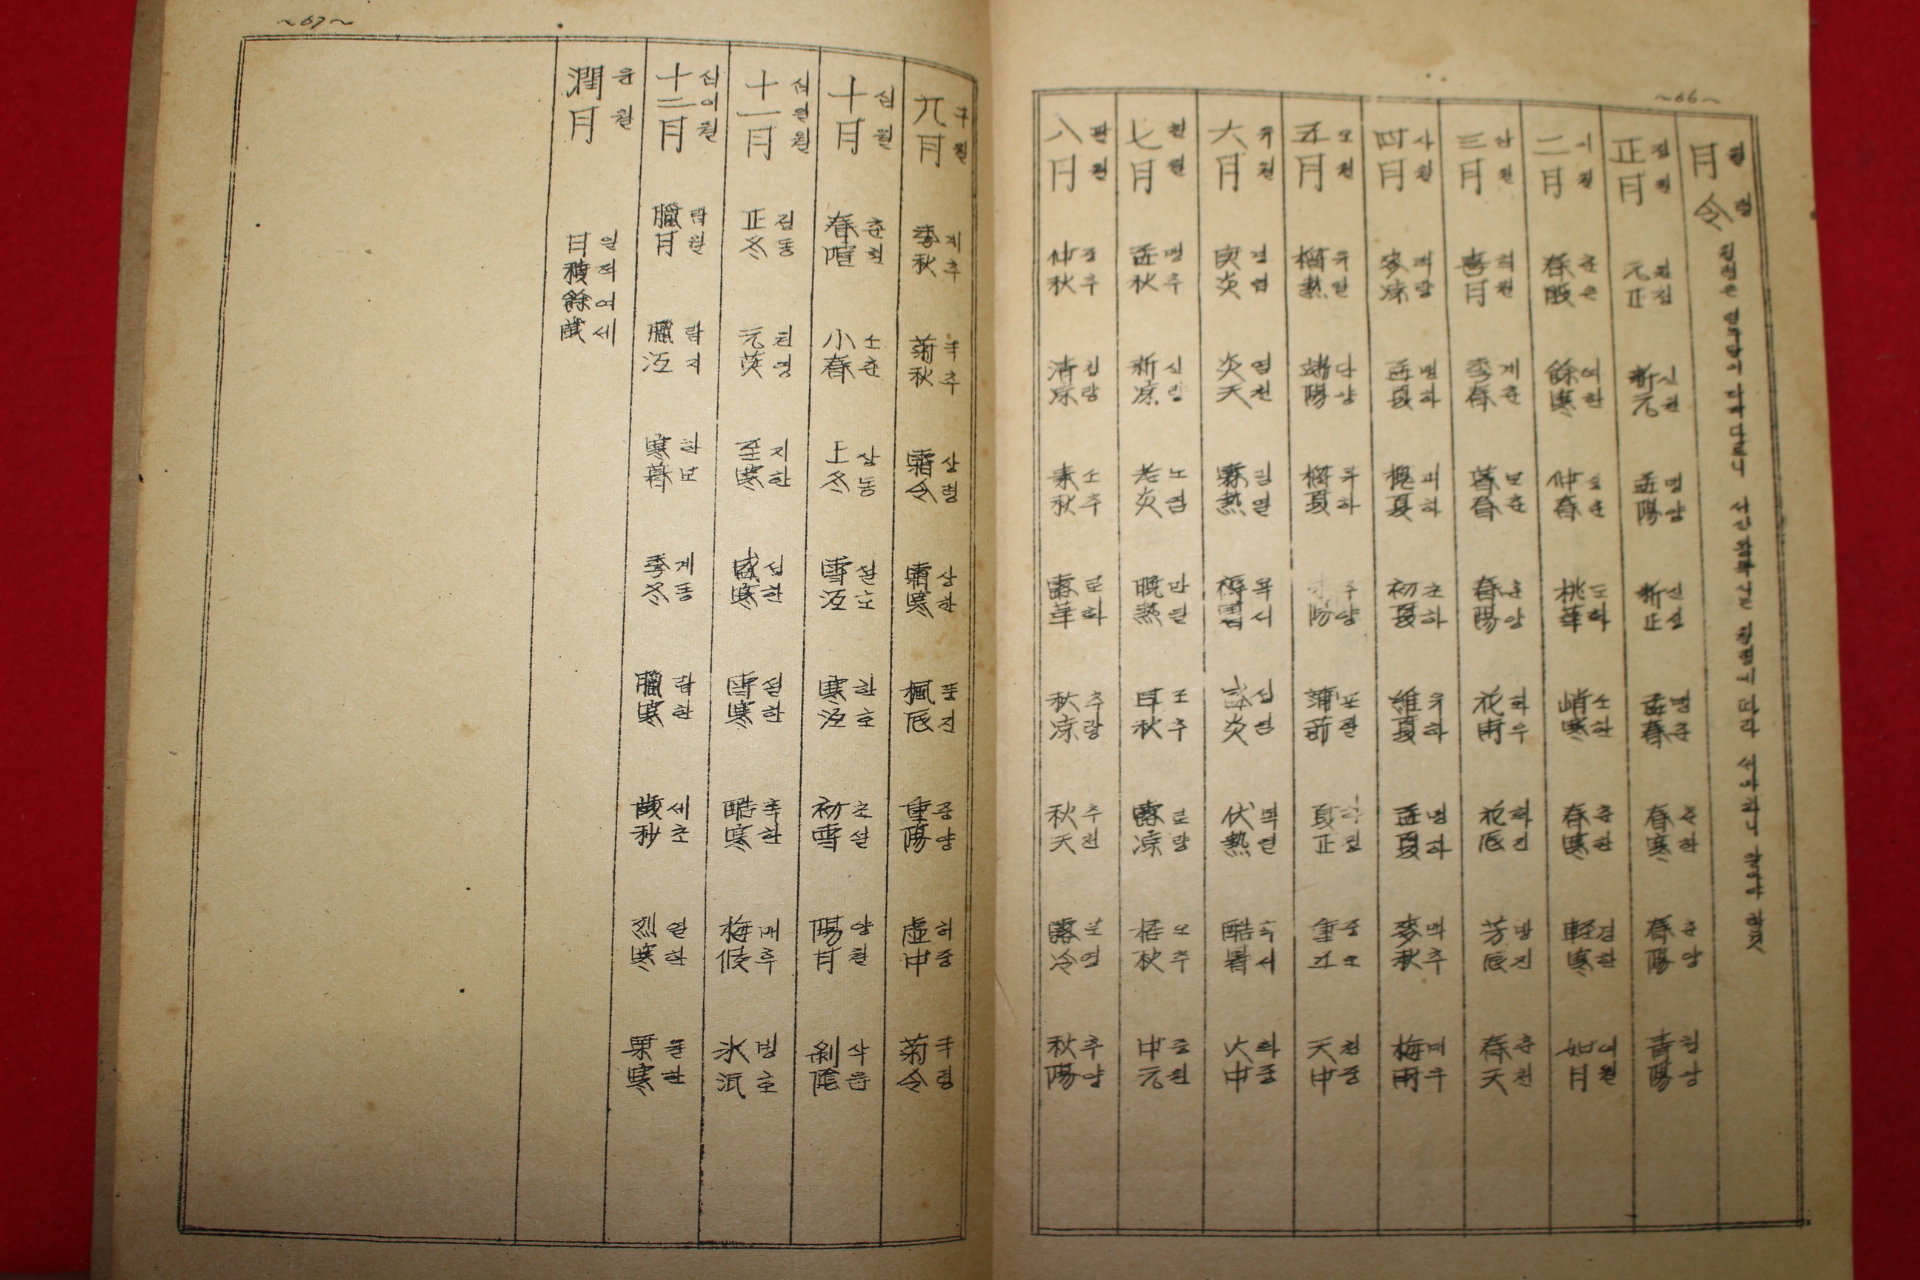 ~66~
月令 월령
正月 정월
元正 원정
新元 신원
孟陽 맹양
新正 신정
孟春 맹춘
春寒 춘한
春陽 춘양
青陽 청양
二月 이월
春殷 춘은
餘寒 여한
仲春 중춘
桃華 도화
峭寒 소한
春寒 춘한
輕寒 경한
如月 여월
三月 삼월
喜月 희월
季春 계춘
暮春 모춘
春陽 춘양
花雨 화우
花辰 화진
芳辰 방진
春天 춘천
四月 사월
麥凉 맥량
孟夏 맹하
槐夏 괴하
初夏 초하
維夏 유하
孟夏 맹하
麥秋 맥추
梅雨 매우
五月 오월
榴熱 유열
端陽 단양
榴夏 류하
陽 주양
蒲節 포절
夏正 하정
重五 중오
天中 천중
六月 유월
庚炎 경염
炎天 염천
霖熱 림열
溽暑 욕서
炎 심염
伏熱 복열
酷暑 혹서
火中 화중
七月 칠월
孟秋 맹추
新凉 신량
老炎 노염
晚熱 만열
早秋 조추
露凉 로량
梧秋 오추
中元 중원
八月 팔월
仲秋 중추
清凉 청량
素秋 소추
露華 로화
秋凉 추량
秋天 추천
露冷 로영
秋陽 추양
~67~
九月 구월
季秋 계추
菊秋 국추
霜令 상령
霜寒 상한
楓辰 풍진
重陽 중양
虛中 허중
菊令 국령
十月 십월
春暄 춘훤
小春 소춘
上冬 상동
雪沍 설호
寒沍 한호
初雪 초설
陽月 양월
剝陰 삭음
十一月 십일월
正冬 정동
元英 원영
至寒 지한
盛寒 성한
雪寒 설한
酷寒 혹한
梅候 매후
氷沍 빙호
十二月 십이월
臘月 랍월
臘沍 랍지
寒暮 한모
季冬 계동
臘寒 랍한
歲秒 세초
烈寒 열한
栗寒 율한
潤月 윤월
日積餘歲 일적여세